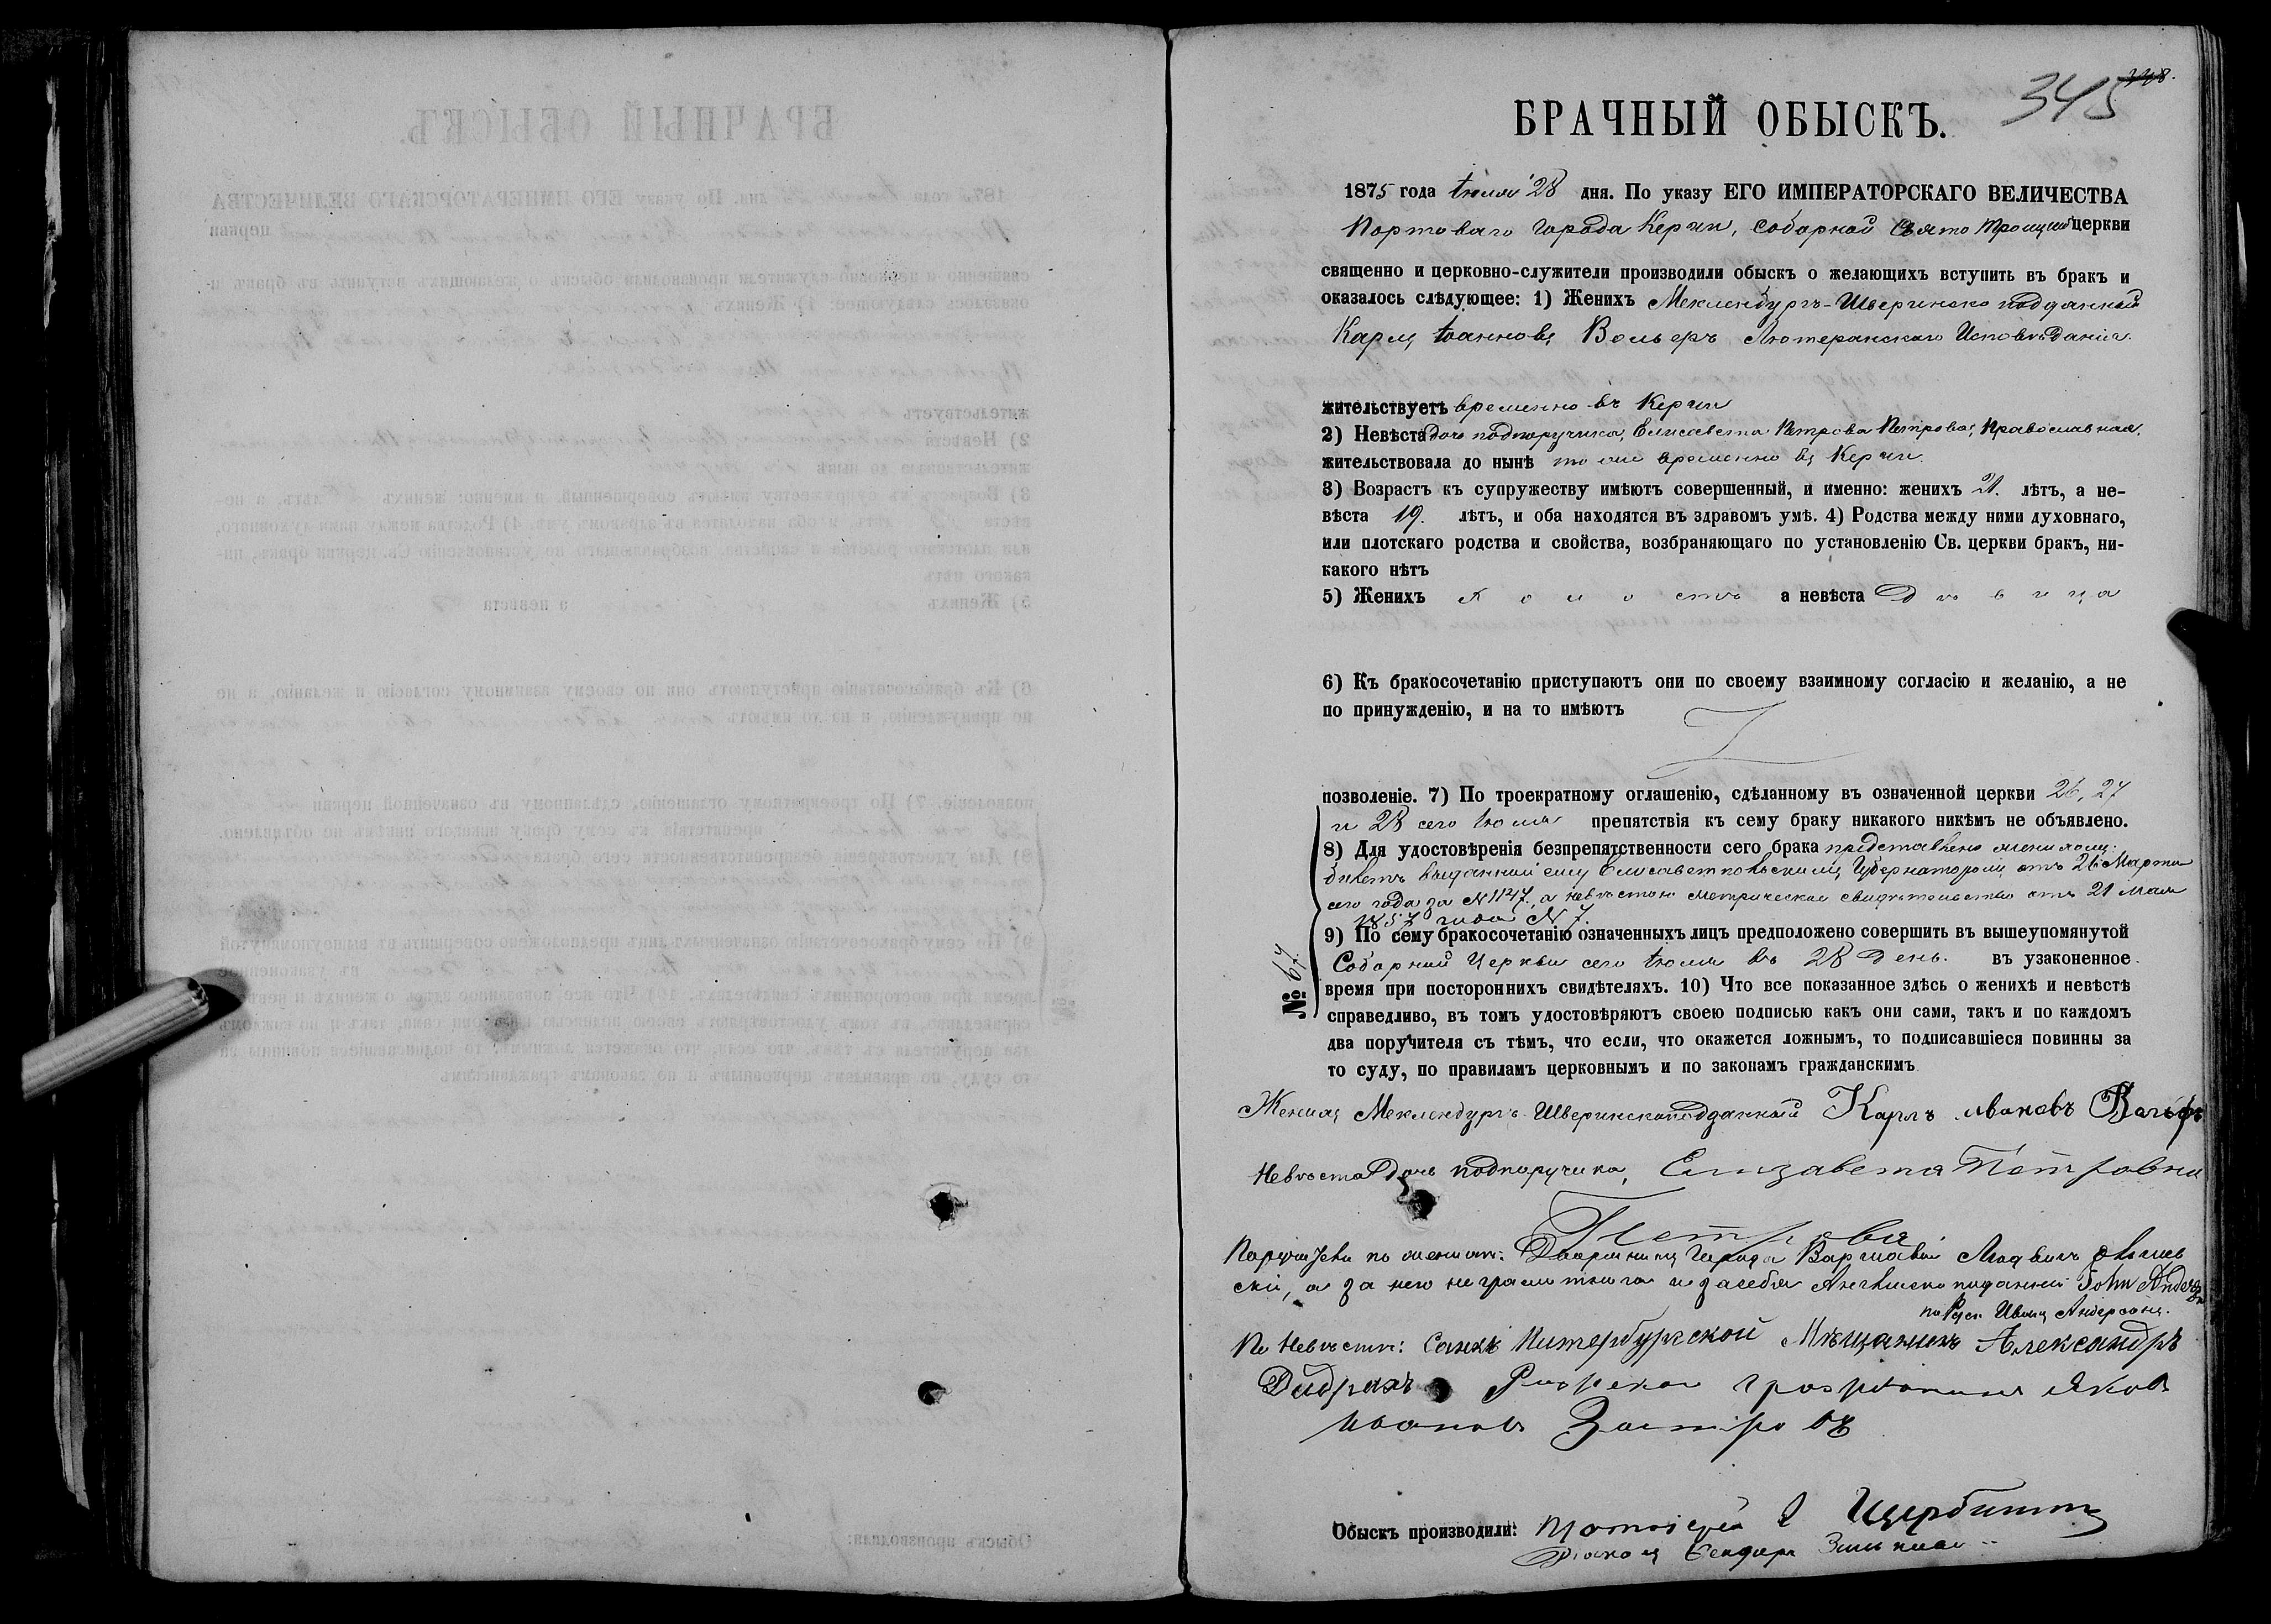 345
БРАЧНЫЙ ОБЫСКЪ.
1875 года Іюля 28 дня. По указу ЕГО ИМПЕРАТОРСКАГО ВЕЛИЧЕСТВА
Портоваго города Керчи, соборной Свято Троицкой церкви
священно и церковно-служители производили обыскъ о желающихъ вступить въ бракъ и
оказалось слѣдующее: 1) Женихъ Мекленбургъ-Шверинско подданный
Карлъ Іоанновъ Вольфъ Лютеранскаго Исповѣданія.
жительствуетъ временно въ Керчи
2) Невѣста дочь подпоручика, Елисавета Петрова Петрова, Православная,
жительствовала до нынѣ то же временно въ Керчи.
3) Возрастъ къ супружеству имѣютъ совершенный, и именно: женихъ 21. лѣтъ, а не-
вѣста 19. лѣтъ, и оба находятся въ здравомъ умѣ. 4) Родства между ними духовнаго,
или плотскаго родства и свойства, возбраняющаго по установленію Св. церкви бракъ, ни-
какого нѣтъ
5) Женихъ холостъ а невѣста дѣвица
6) Къ бракосочетанію приступаютъ они по своему взаимному согласію и желанію, а не
по принужденію, и на то имѣютъ
позволеніе. 7) По троекратному оглашенію, сдѣланному въ означенной церкви 26, 27
и 28 сего Іюля препятствія къ сему браку никакого никѣмъ не объявлено.
8) Для удостовѣренія безпрепятственности сего брака представлено женихомъ:
билетъ выданный ему Елисаветпольскимъ Губернаторомъ отъ 26 Марта
сего года за № 1147, а невѣстою метрическое свидѣтельство отъ 21 Мая
1857 года № 7.
9) По сему бракосочетанію означенныхъ лицъ предположено совершить въ вышеупомянутой
Соборной Церкви сего Іюля въ 28 день. въ узаконенное
№ 67.
время при постороннихъ свидѣтеляхъ. 10) Что все показанное здѣсь о женихѣ и невѣстѣ
справедливо, въ томъ удостовѣряютъ своею подписью какъ они сами, такъ и по каждомъ
два поручителя съ тѣмъ, что если, что окажется ложнымъ, то подписавшіеся повинны за
то суду, по правиламъ церковнымъ и по законамъ гражданскимъ
Женихъ Мекленбургъ-Шверинскоподданный Карлъ Ивановъ Вольфъ
Невѣста дочь подпоручика, Елизавета Петровна
Петрова
Поручители по женихѣ: Дворянинъ города Варшавы Людвигъ
скій, а за него неграмотнаго и за себя Англійско подданный John Anderson
по Руск. Иванъ Андерсонъ.
По Невѣстѣ: Санкъ Питербургской Мѣщанинъ Александръ
Дидрихъ Яков
Иванов
Обыскъ производили: Протоіерей І Щербини
Діаконъ Ѳеодоръ